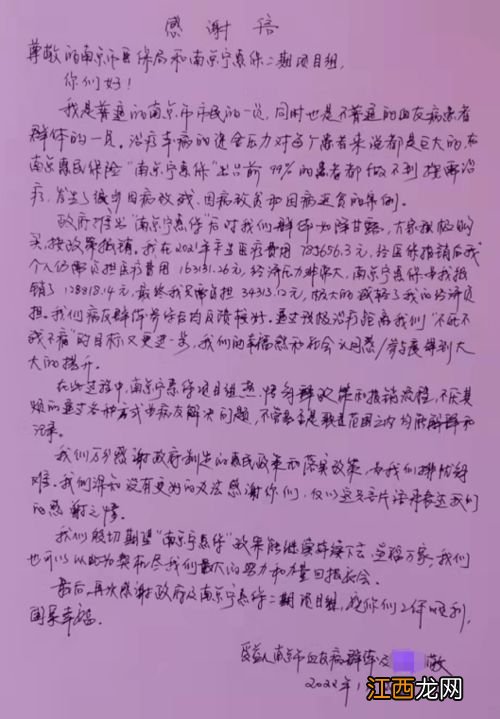 感谢信
尊敬的南京市医保局和南京宁惠保二期项目组,
你们好!
我是普通的南京市市民的一员,同时也是不普通的血友病患者
群体的一员。治疗本病的资金压力对每个患者来说都是巨大的,在
南京惠民保险"南京宁惠保"出台前99%的患者都做不到按需治
疗,发生了很多因病致残、因病致贫和因病返贫的案例。
政府推出"南京宁惠保"后对我们群体如降甘露,大家积极购
买,按政策报销。我在2021年产生医疗费用785656.3元,经医保报销后我
个人仍需负担医疗费用163131.26元,经济压力非常大,南京宁惠保为我报
销了128818.14元,最终我只需负担34313.12元,极大的减轻了我的经济负
担。我们病友群体参保后均反馈很好。通过积极治疗距离我们"不死不
残不痛"的目标又更进一步,我们的幸福感和社会认同感/参与度得到大
大的提升。
在此过程中,南京宁惠保项目组熟悉各种政策和报销流程,不厌其
烦的通过各种方式为病友解决问题,不管是否是职责范围之内均能解释和
记录。
我们万分感谢政府制定的惠民政策和落实政策,为我们排忧解
难。我们深知没有更好的办法感谢你们,仅以这只言片语来表达我们
的感谢之情。
我们殷切期望"南京宁惠保"政策能继续持续下去,造福万家。我们
也可以以此为契机尽我们最大的努力和力量回报社会。
最后,再次感谢政府及南京宁惠保二期项目组,愿你们工作顺利,
阖家幸福。
受益人南京市血友病群体及 敬
2022年1
江西龙网